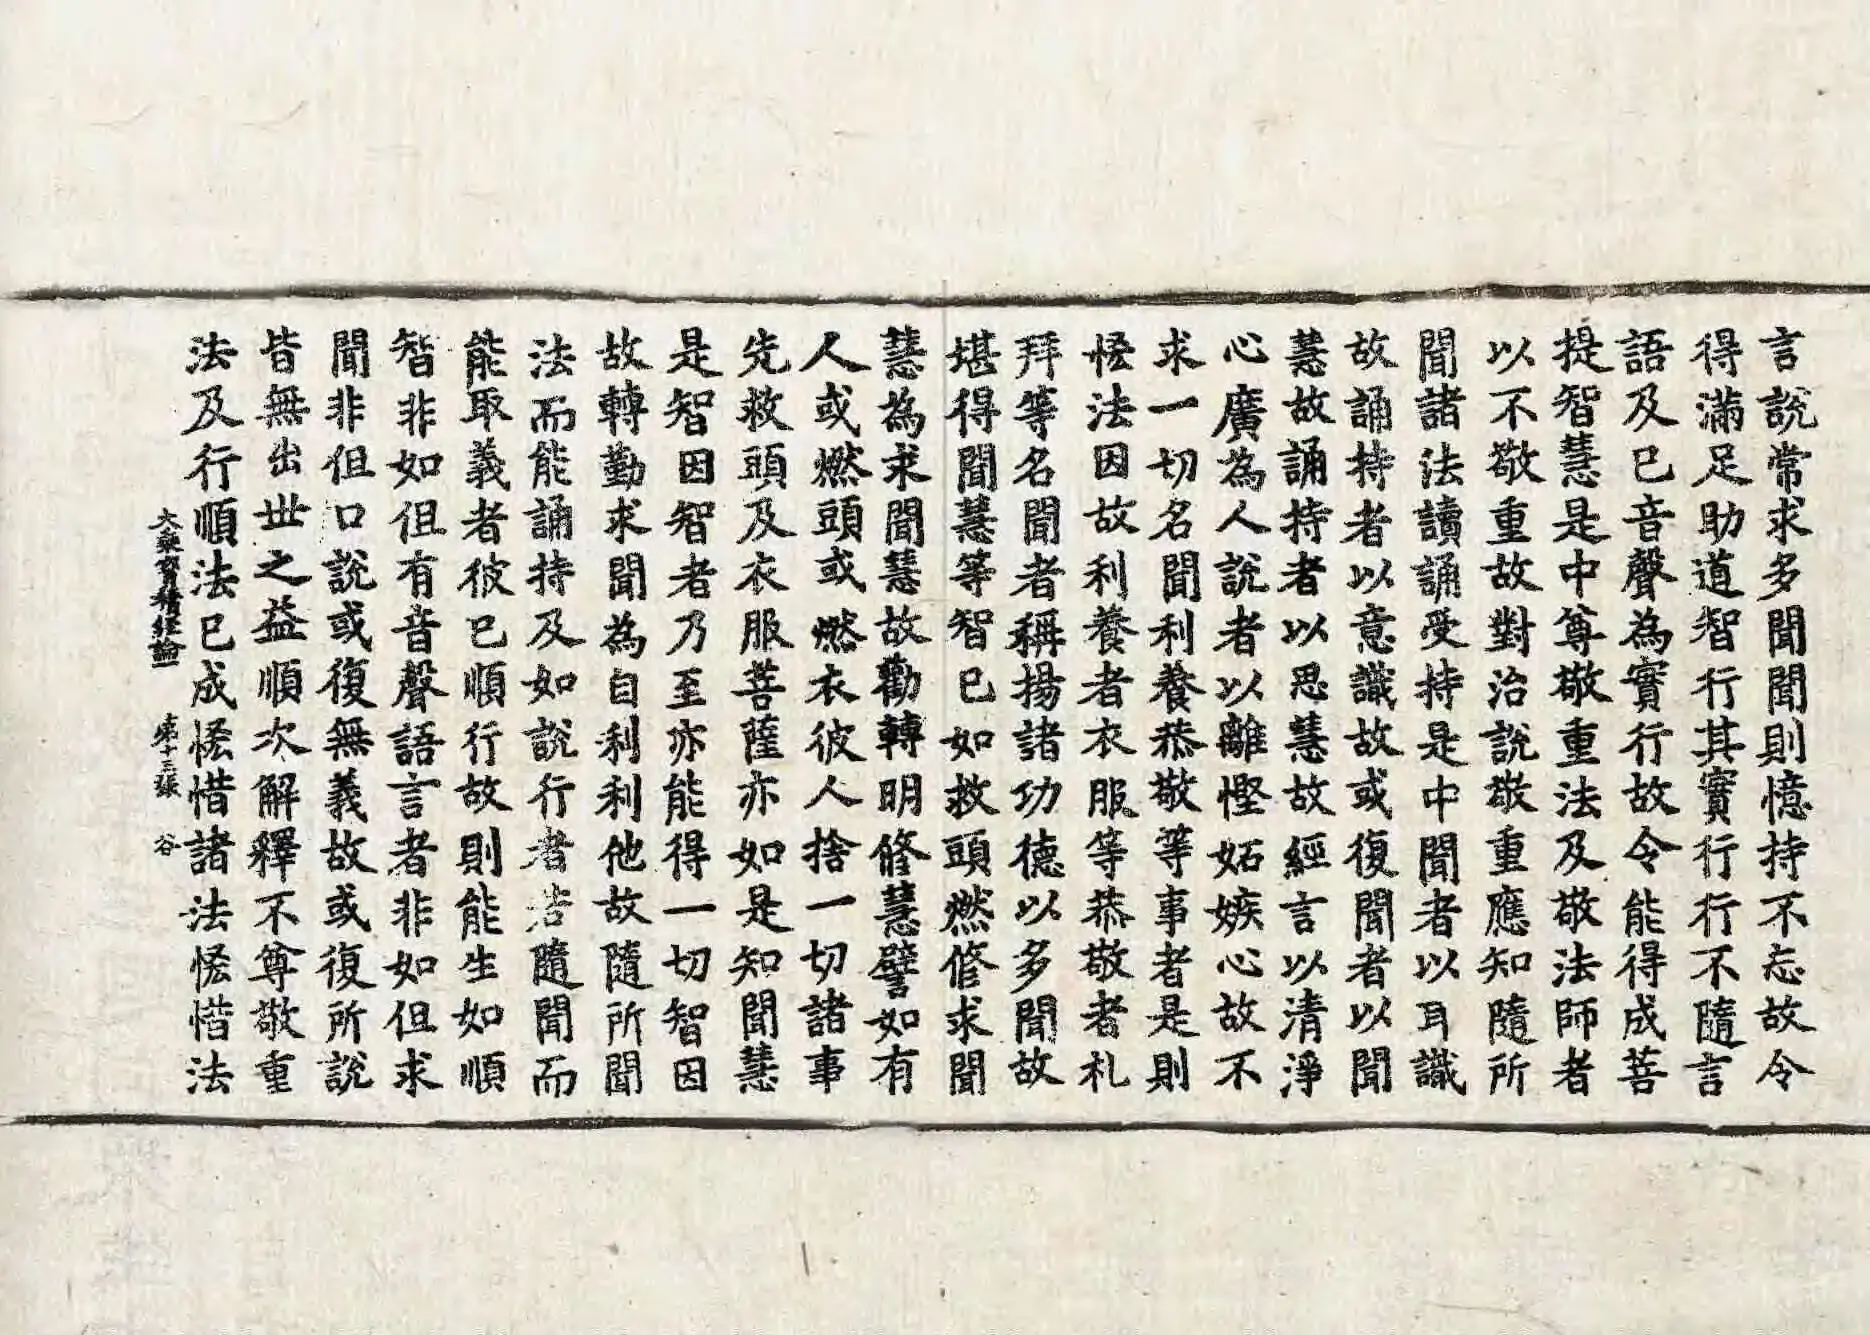 言說常求多聞聞則憶持不忘故令
得滿足助道智行其實行行不隨言
語及已音聲為實行故令能得成菩
提智慧是中尊敬重法及敬法師者
以不敬重故對治說敬重應知隨所
聞諸法讀誦受持是中聞者以耳識
故誦持者以意識故或復聞者以聞
慧故誦持者以思慧故經言以清淨
心廣為人說者以離慳妬嫉心故不
求一切名聞利養恭敬等事者是則
恡法因故利養者衣服等恭敬者礼
拜等名聞者稱揚諸功德以多聞故
堪得聞慧等智已如救頭燃修求聞
慧為求聞慧故勸轉明修慧譬如有
人或燃頭或燃衣彼人捨一切諸事
先救頭及衣服菩薩亦如是知聞慧
是智因智者乃至亦能得一切智因
故轉勤求聞為自利利他故隨所聞
法而能誦持及如說行者若隨聞而
能取義者彼已順行故則能生如順
智非如但有音聲語言者非如但求
聞非但口說或復無義故或復所說
皆無出世之益順次解釋不尊敬重
法及行順法已成恡惜諸法恡惜法
大乘寶積經論一　第十三張　谷